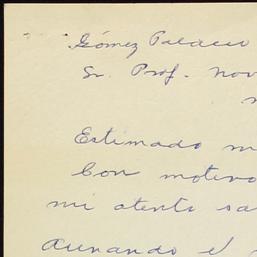 Gómez Palacio
Sr. Prof. Nov
Estimado m
Con motivo
mi atento sa
aunando el